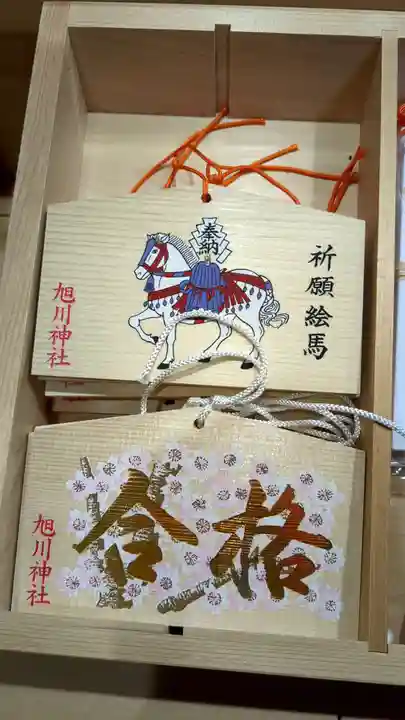 奉納
祈願絵馬
旭川神社
合格
旭川神社